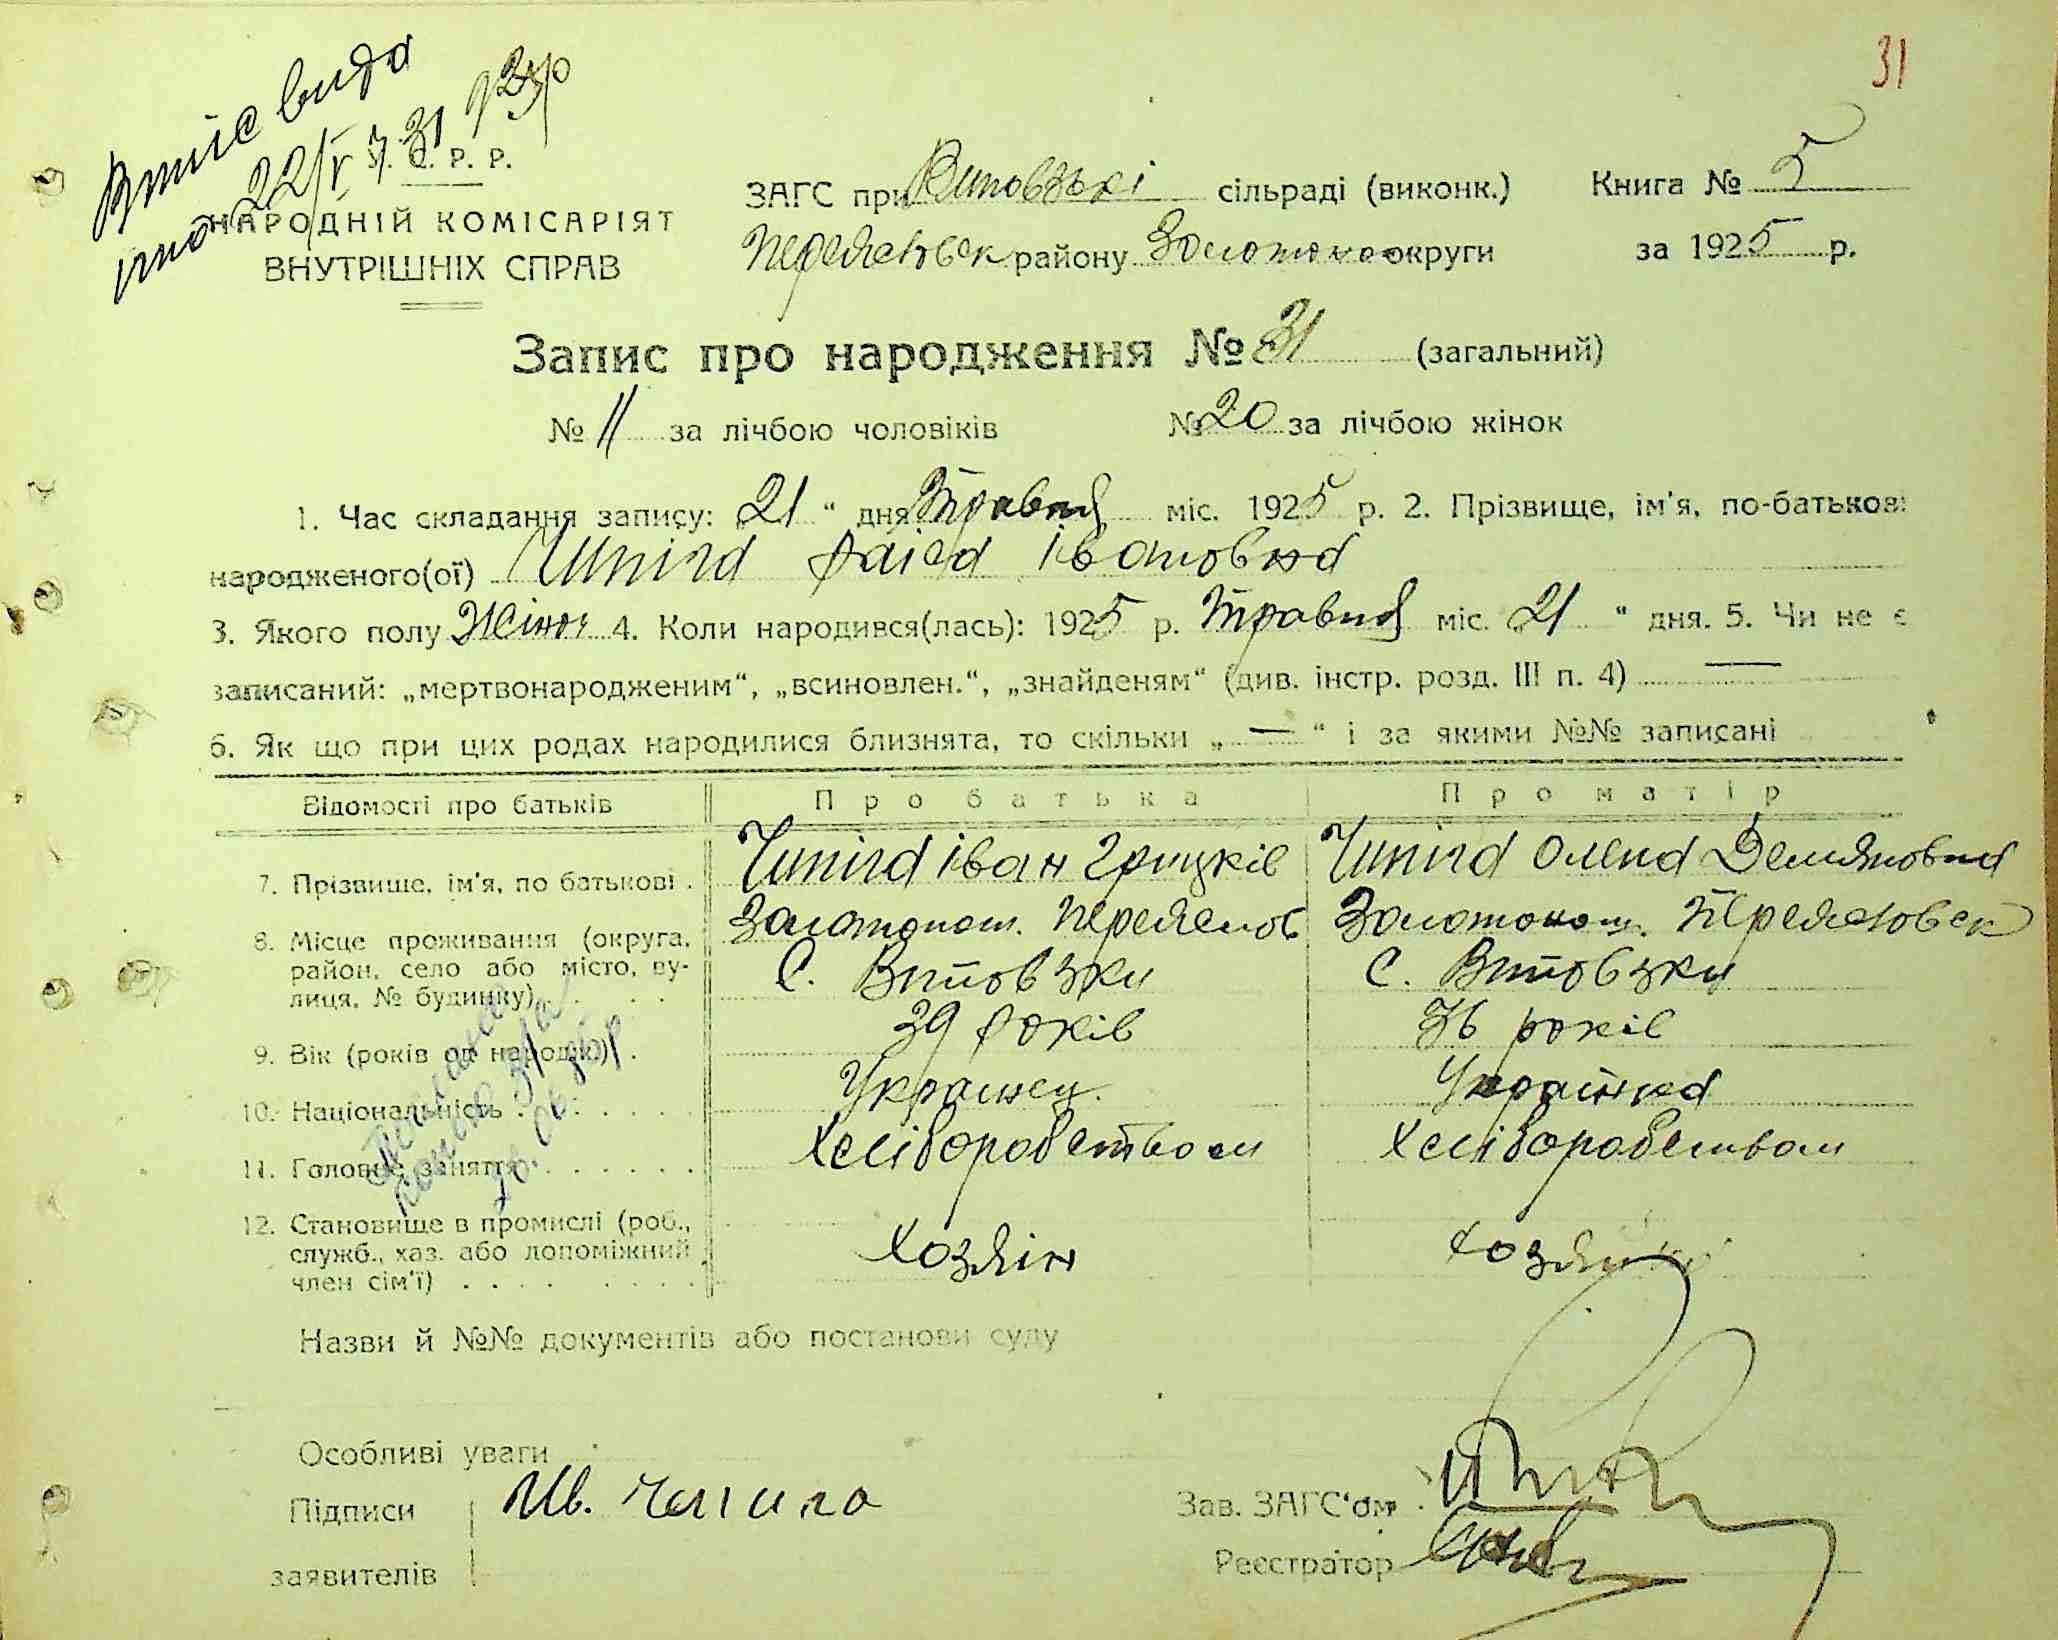 31
Витяг вида
22/V 31
У. С. Р. Р.
НАРОДНІЙ КОМІСАРІЯТ
ВНУТРІШНІХ СПРАВ
ЗАГС при Витовзькі сільраді (виконк.) Книга № 5
Переяславск району Золотонос округи за 1925 р.
Запис про народження № 31 (загальний)
№ 11 за лічбою чоловіків № 20 за лічбою жінок
1. Час складання запису: „21“ дня Травня міс. 1925 р. 2. Прізвище, ім'я, по-батькові
народженого(ої) Чипіга раіса Івановна
3. Якого полу Жіноч 4. Коли народився(лась): 1925 р. Травня міс. „21“ дня. 5. Чи не є
записаний: „мертвонародженим“, „всиновлен.“, „знайденям“ (див. інстр. розд. III п. 4) —
6. Як що при цих родах народилися близнята, то скільки „—“ і за якими №№ записані
Відомості про батьків Про батька Про матір
7. Прізвище, ім'я, по батькові . Чипіга Іван Грицків Чипіга Олена Демяновна
8. Місце проживання (округа, район, село або місто, вулиця, № будинку) Золотонош. Переяслов Золотонош. Переясловск
С. Витовзки С. Витовзки
9. Вік (років од народж.) . 39 років 36 років
10. Національність . . . Украінец. Украінка
11. Головне заняття . . . Хліборобством Хліборобством
12. Становище в промислі (роб.,
служб., хаз. або допоміжний
член сім'ї) . . . Хозяін Хозяйка
Назви й №№ документів або постанови суду
Особливі уваги
Підписи Ив. Чепіга Зав. ЗАГС'ом
заявителів Реєстратор